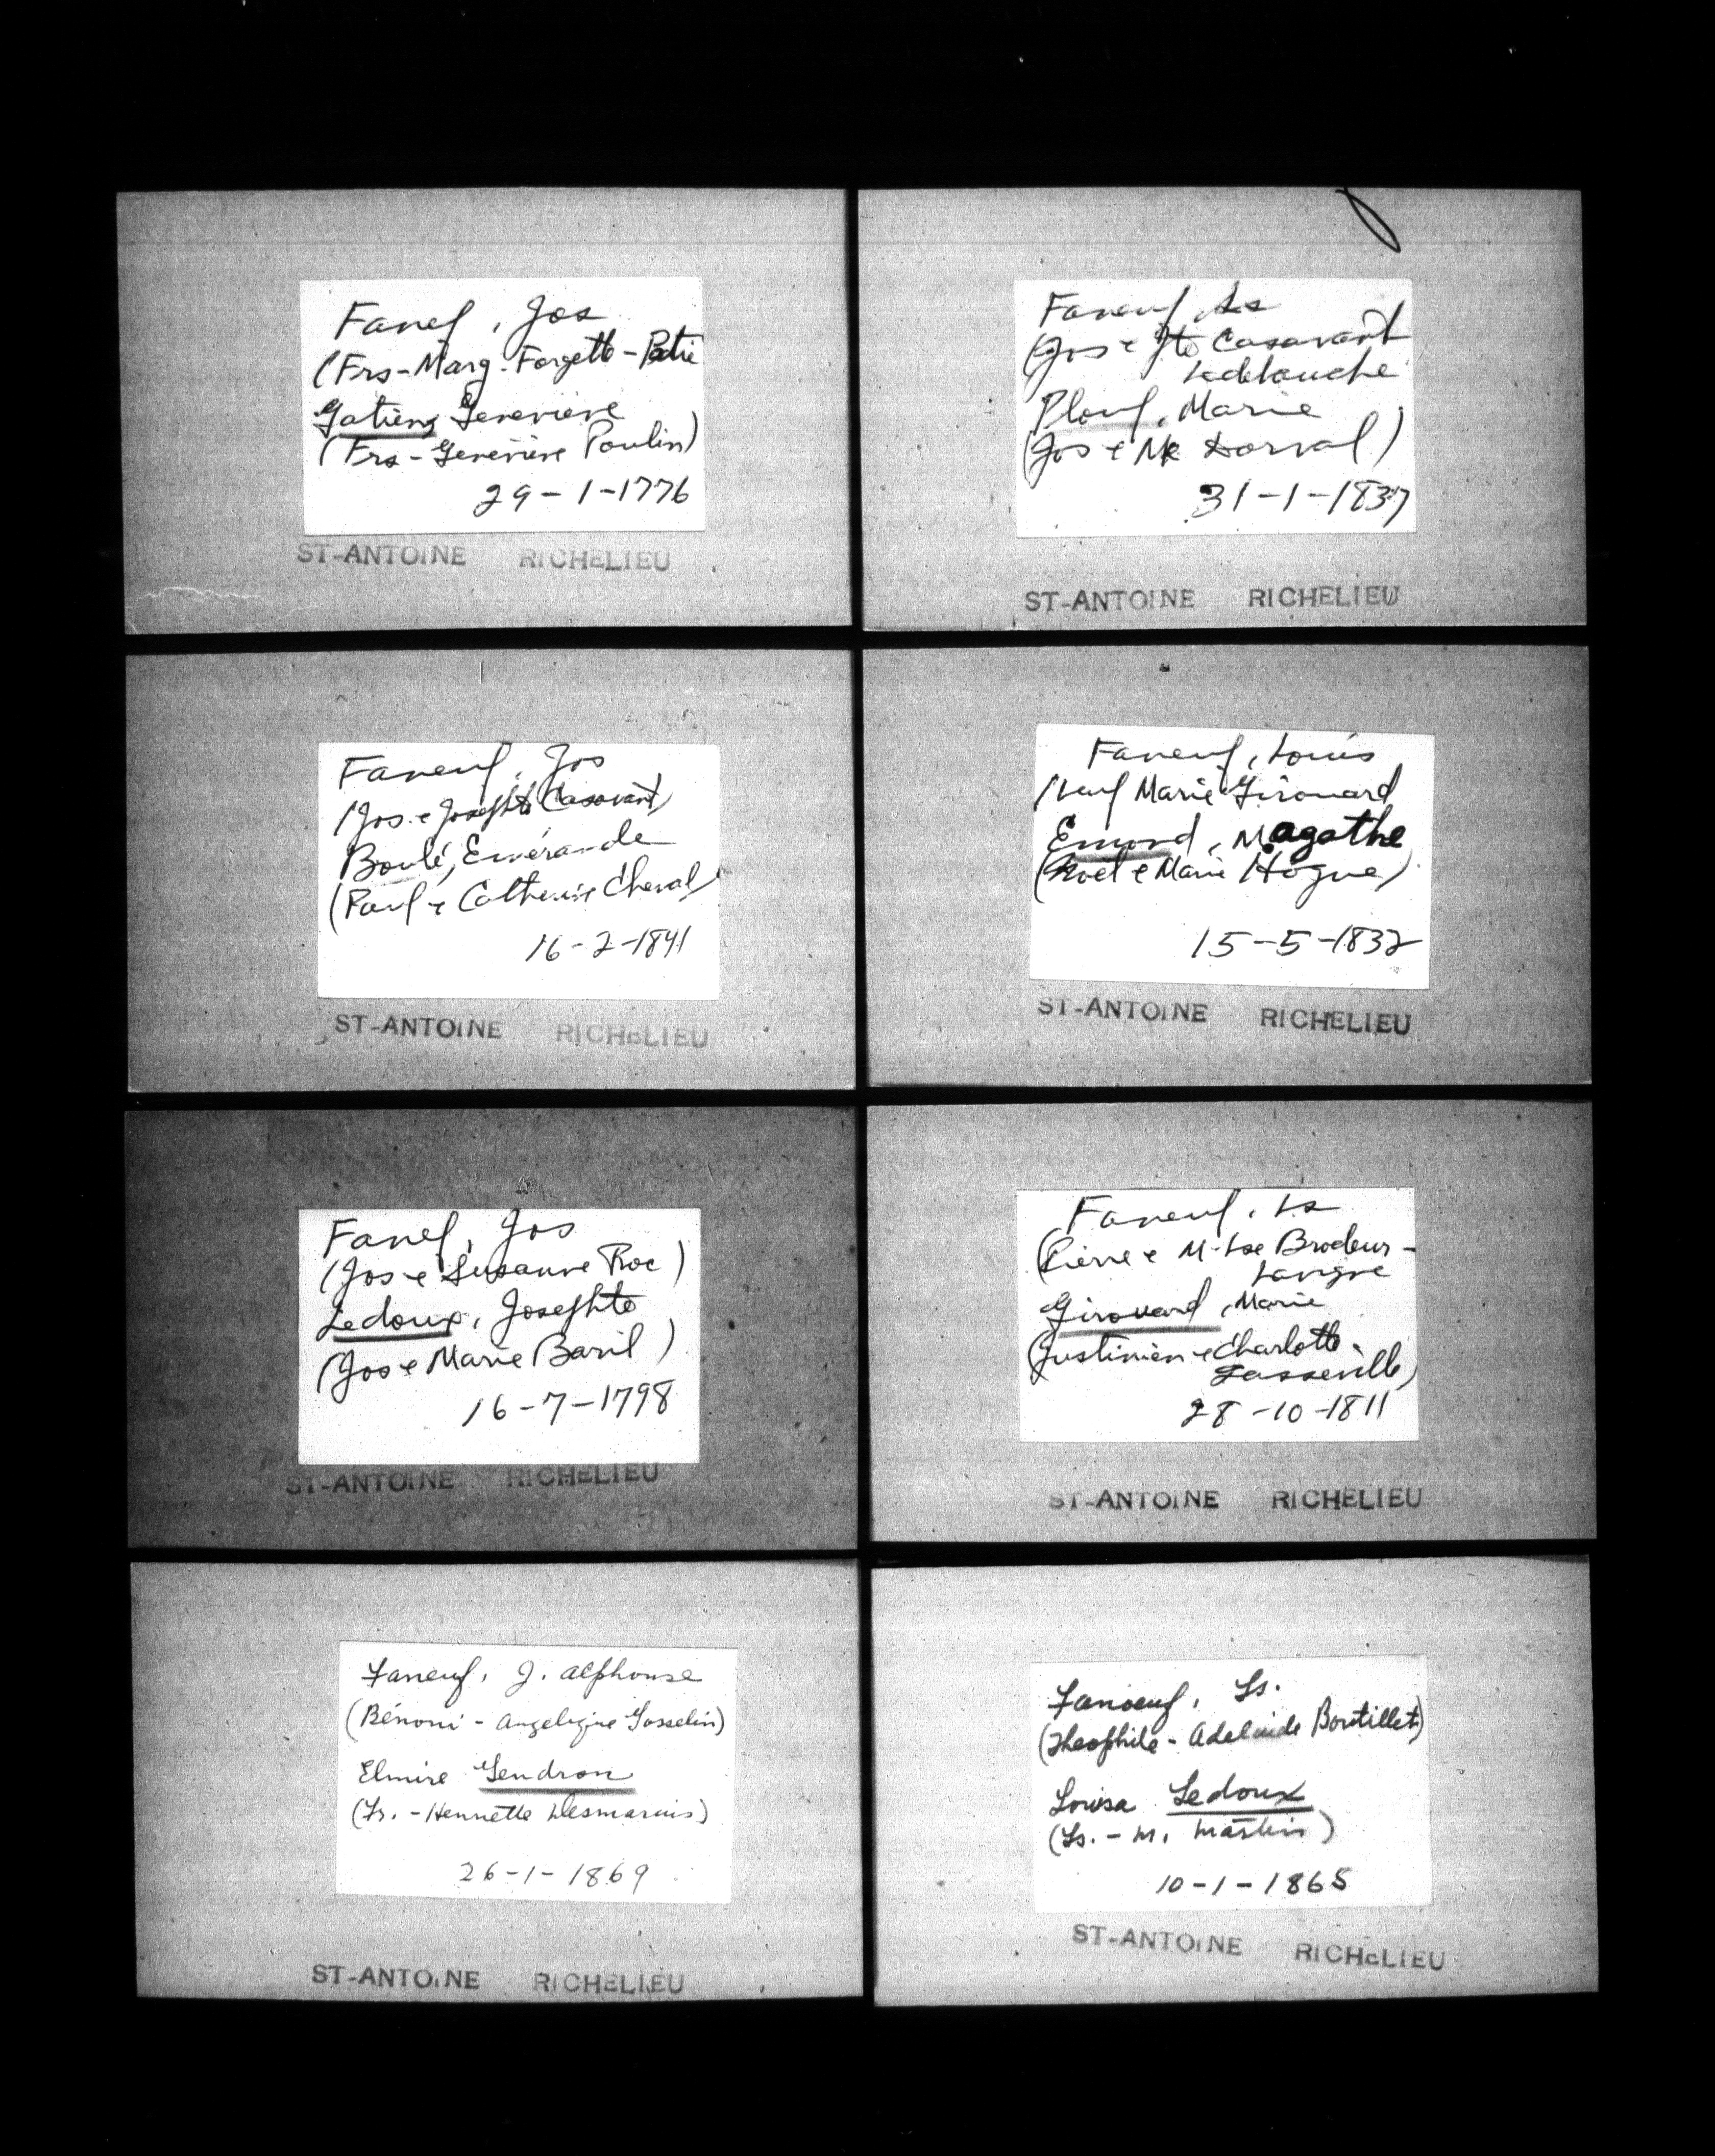 Fanef, Jos
(Frs - Marg. Forgette - Patrie
Gatien, Geneviève
(Frs - Geneviève Poulin)
29-1-1776
ST-ANTOINE RICHELIEU
Faneuf, Ls
(Jos e Jte Casavant
Ladebauche
Plouf, Marie
(Jos e Dorval)
31-1-1837
ST-ANTOINE RICHELIEU
Faneuf, Jos
(Jos e Josephte Casavant)
Boulé, Emérande
(Paul e Catherine Cheval)
16-2-1841
ST-ANTOINE RICHELIEU
Faneuf, Louis
(Veuf Marie Girouard
Emond, Magathe
(Noel e Marie Hogue)
15-5-1832
ST-ANTOINE RICHELIEU
Fanef, Jos
(Jos e Susanne Roc)
Ledoux, Josephte
(Jos e Marie Baril)
16-7-1798
ST-ANTOINE RICHELIEU
Faneuf, Ls
(Pierre e M-Lse Brodeur-
Lavigne
Girouard, Marie
(Justinien e Charlotte
Lasseville)
28-10-1811
ST-ANTOINE RICHELIEU
Faneuf, J. Alphonse
(Bénoni - Angelique Gosselin)
Elmire Gendron
(Fr. - Henriette Desmarais)
26-1-1869
ST-ANTOINE RICHELIEU
Fanoeuf, Ls.
(Theophile - Adelaide Boutillet)
Louisa Ledoux
(Ls. - M. Martin)
10-1-1865
ST-ANTOINE RICHELIEU